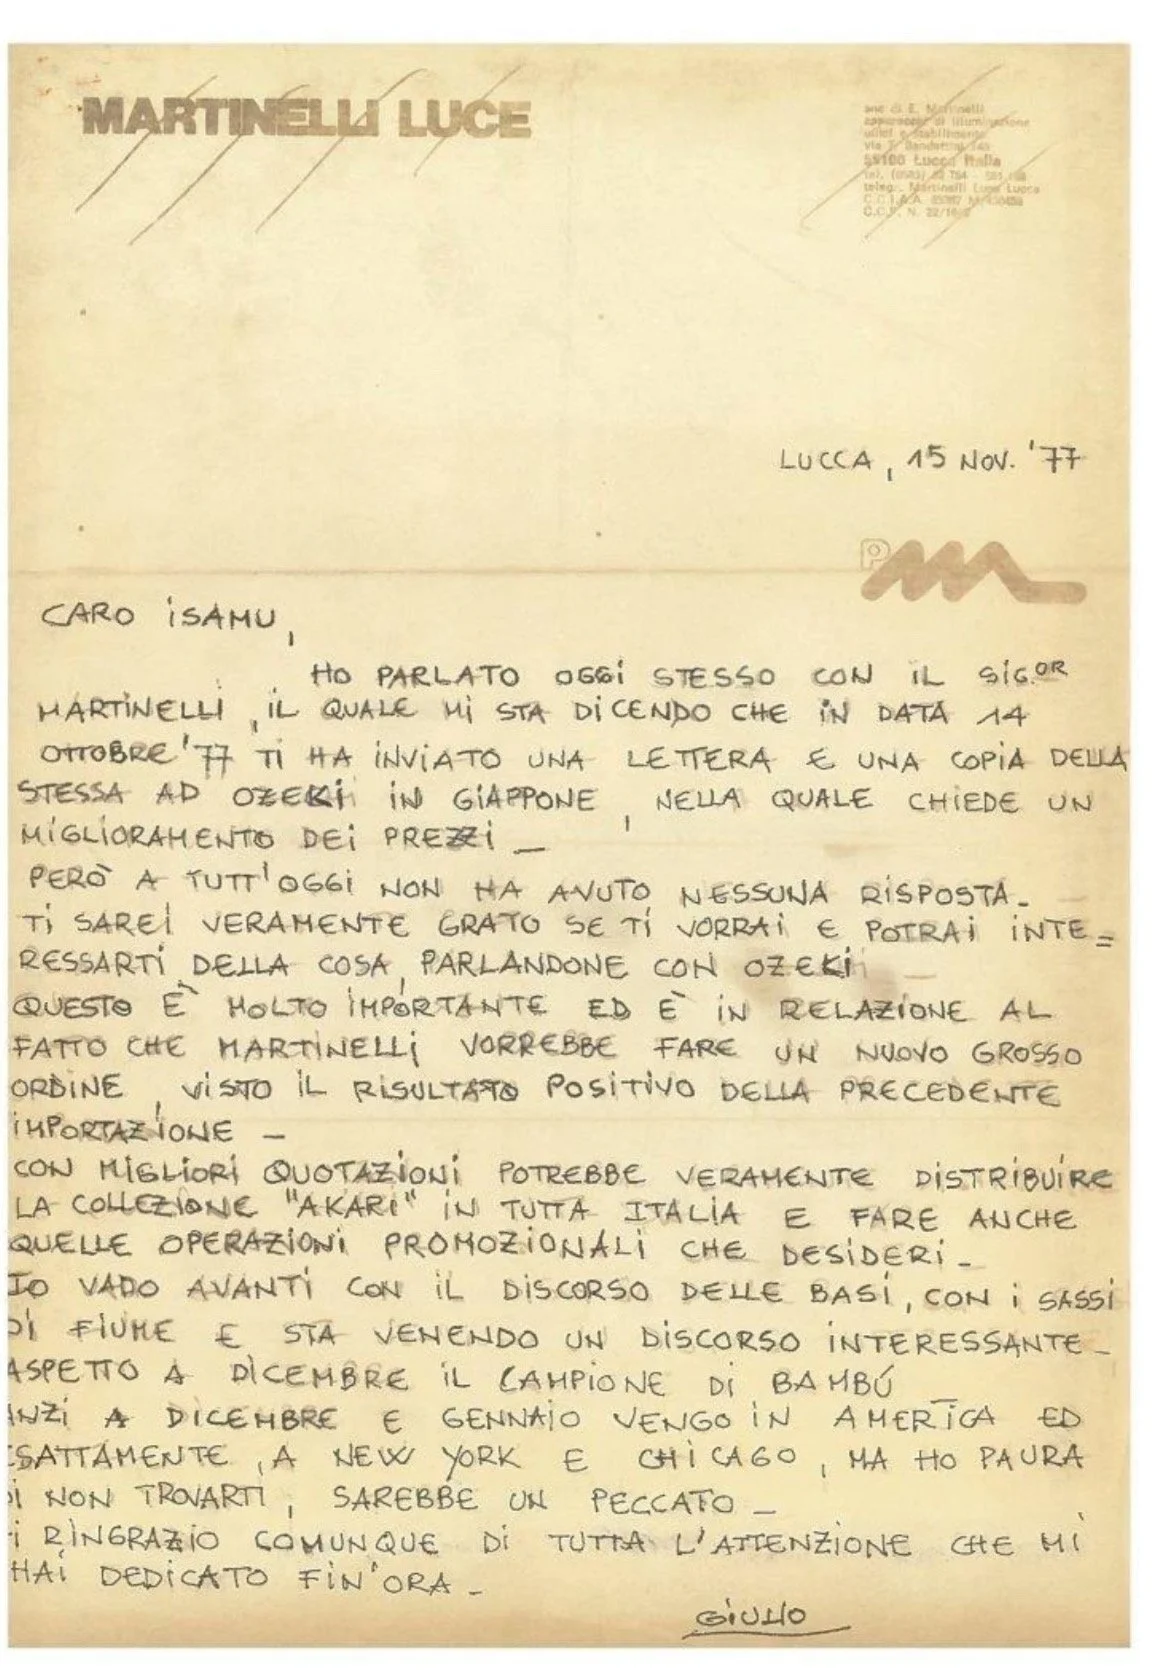 MARTINELLI LUCE
snc di E. Martinelli
apparecchi di illuminazione
uffici e stabilimento
via T. Bandettini
55100 Lucca Italia
teleg. Martinelli Luce Lucca
C.C.I.A.A.
LUCCA, 15 NOV. '77
PM
CARO ISAMU,
HO PARLATO OGGI STESSO CON IL SIG.OR
MARTINELLI, IL QUALE MI STA DICENDO CHE IN DATA 14
OTTOBRE '77 TI HA INVIATO UNA LETTERA E UNA COPIA DELLA
STESSA AD OZEKI IN GIAPPONE, NELLA QUALE CHIEDE UN
MIGLIORAMENTO DEI PREZZI _
PERÒ A TUTT'OGGI NON HA AVUTO NESSUNA RISPOSTA _
TI SAREI VERAMENTE GRATO SE TI VORRAI E POTRAI INTE=
RESSARTI DELLA COSA, PARLANDONE CON OZEKI
QUESTO È MOLTO IMPORTANTE ED È IN RELAZIONE AL
FATTO CHE MARTINELLI VORREBBE FARE UN NUOVO GROSSO
ORDINE, VISTO IL RISULTATO POSITIVO DELLA PRECEDENTE
IMPORTAZIONE _
CON MIGLIORI QUOTAZIONI POTREBBE VERAMENTE DISTRIBUIRE
LA COLLEZIONE "AKARI" IN TUTTA ITALIA E FARE ANCHE
QUELLE OPERAZIONI PROMOZIONALI CHE DESIDERI _
IO VADO AVANTI CON IL DISCORSO DELLE BASI, CON I SASSI
DI FIUME E STA VENENDO UN DISCORSO INTERESSANTE _
ASPETTO A DICEMBRE IL CAMPIONE DI BAMBÚ
ANZI A DICEMBRE E GENNAIO VENGO IN AMERICA ED
ESATTAMENTE, A NEW YORK E CHICAGO, MA HO PAURA
DI NON TROVARTI, SAREBBE UN PECCATO _
TI RINGRAZIO COMUNQUE DI TUTTA L'ATTENZIONE CHE MI
HAI DEDICATO FIN'ORA _
GIULIO